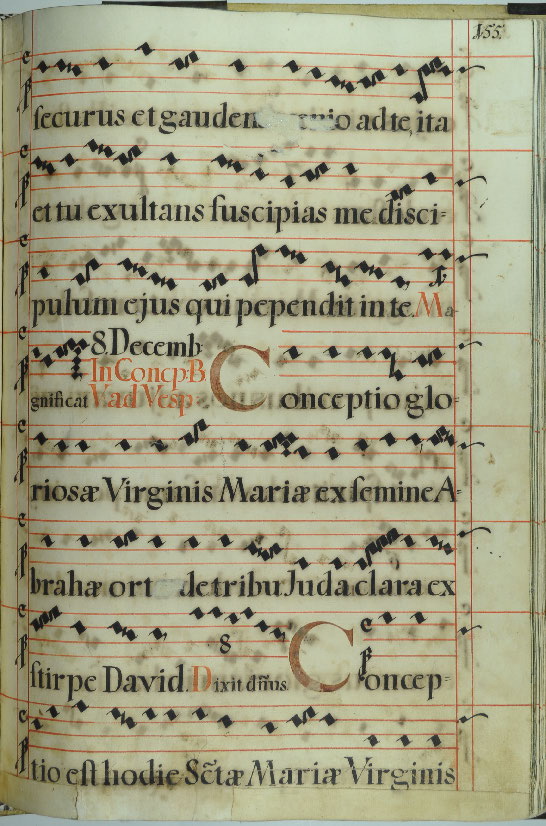 155.
securus et gauden venio ad te, ita
et tu exultans suscipias me disci-
pulum ejus qui pependit in te. Ma-
8. Decemb.
In Concep. B
gnificat V. ad Vesp
Conceptio glo-
riosæ Virginis Mariæ ex semine A-
brahæ ort de tribu Juda clara ex
stirpe David. Dixit dñus
8
Concep-
tio est hodie Sctæ Mariæ Virginis